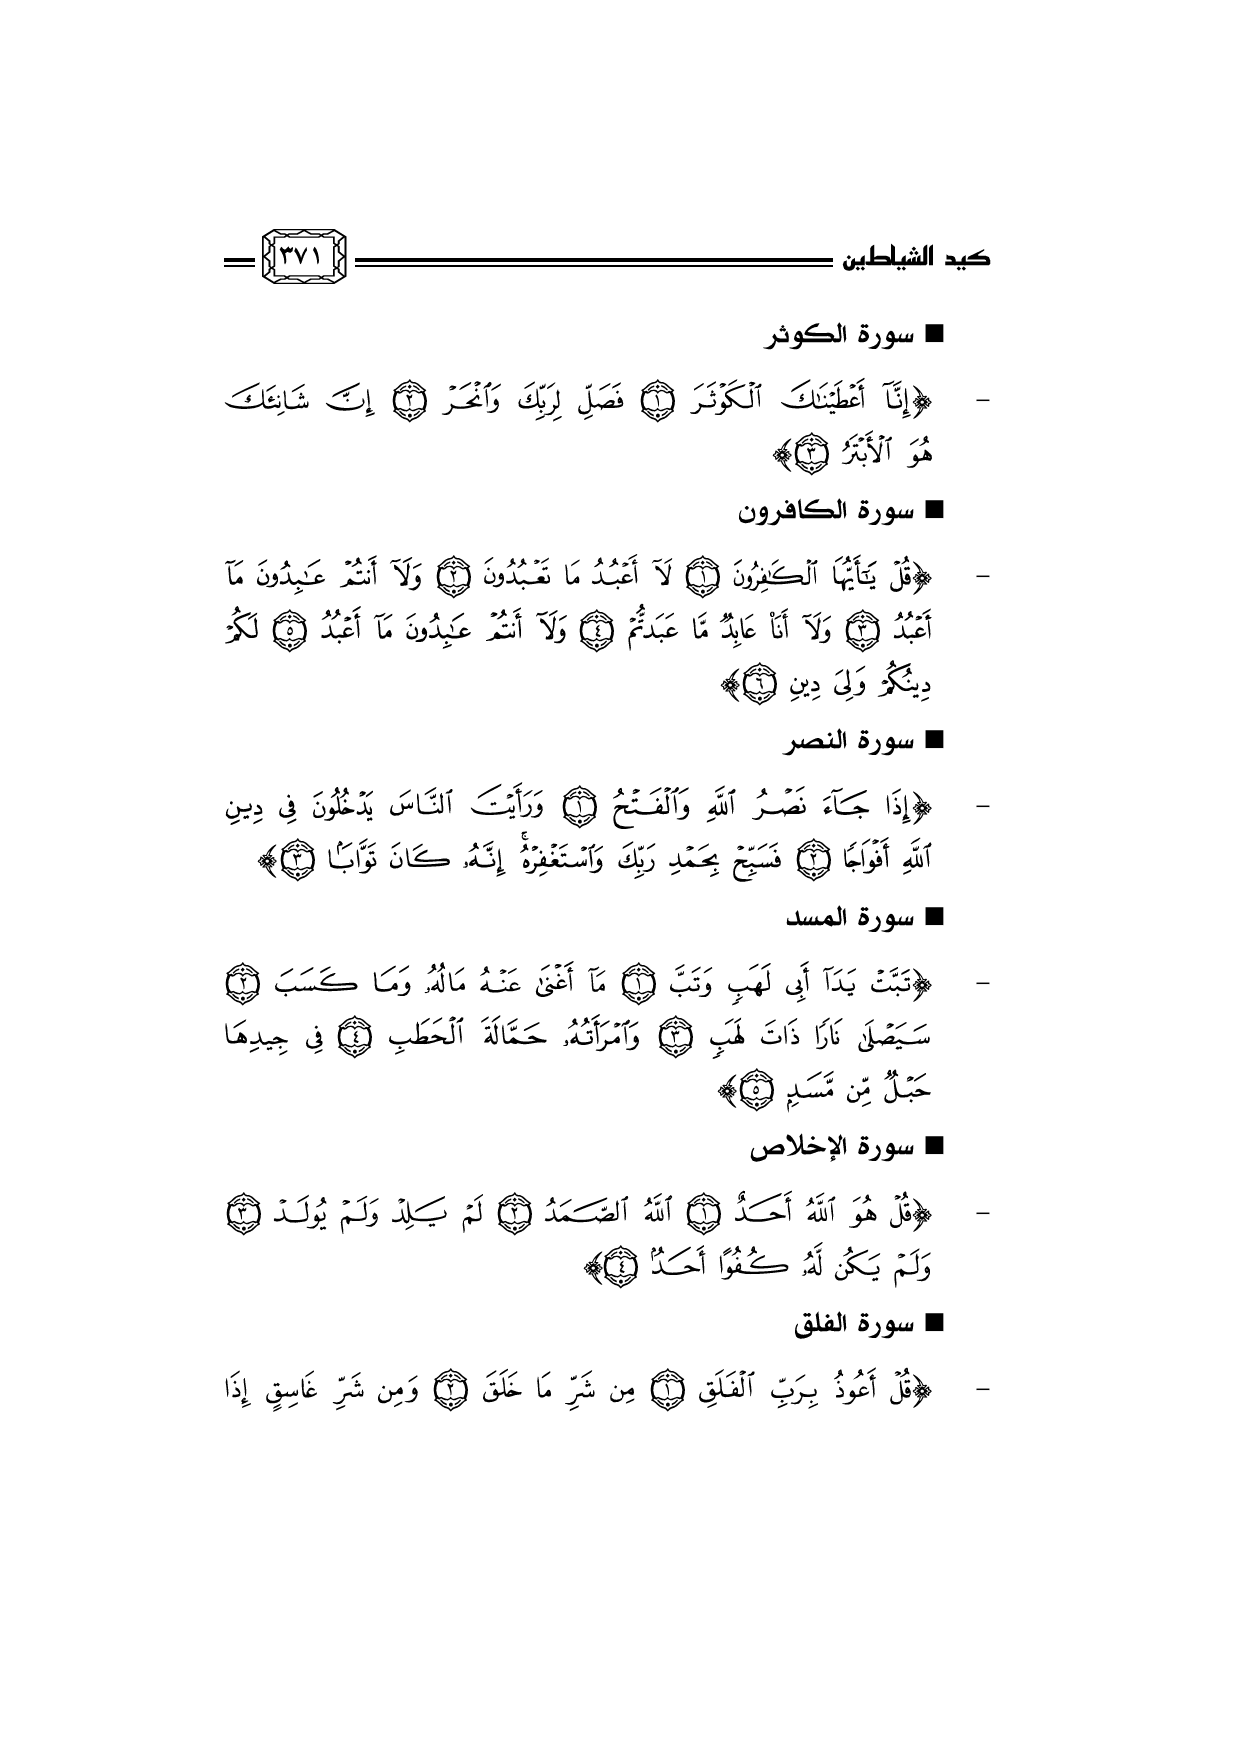 كيد الشياطين ٣٧١
■ سورة الكوثر
- ﴿إِنَّآ أَعْطَيْنَٰكَ ٱلْكَوْثَرَ ١ فَصَلِّ لِرَبِّكَ وَٱنْحَرْ ٢ إِنَّ شَانِئَكَ
هُوَ ٱلْأَبْتَرُ ٣﴾
■ سورة الكافرون
- ﴿قُلْ يَٰٓأَيُّهَا ٱلْكَٰفِرُونَ ١ لَآ أَعْبُدُ مَا تَعْبُدُونَ ٢ وَلَآ أَنتُمْ عَٰبِدُونَ مَآ
أَعْبُدُ ٣ وَلَآ أَنَا۠ عَابِدٌ مَّا عَبَدتُّمْ ٤ وَلَآ أَنتُمْ عَٰبِدُونَ مَآ أَعْبُدُ ٥ لَكُمْ
دِينُكُمْ وَلِىَ دِينِ ٦﴾
■ سورة النصر
- ﴿إِذَا جَآءَ نَصْرُ ٱللَّهِ وَٱلْفَتْحُ ١ وَرَأَيْتَ ٱلنَّاسَ يَدْخُلُونَ فِى دِينِ
ٱللَّهِ أَفْوَاجًا ٢ فَسَبِّحْ بِحَمْدِ رَبِّكَ وَٱسْتَغْفِرْهُۚ إِنَّهُۥ كَانَ تَوَّابًۢا ٣﴾
■ سورة المسد
- ﴿تَبَّتْ يَدَآ أَبِى لَهَبٍ وَتَبَّ ١ مَآ أَغْنَىٰ عَنْهُ مَالُهُۥ وَمَا كَسَبَ ٢
سَيَصْلَىٰ نَارًا ذَاتَ لَهَبٍ ٣ وَٱمْرَأَتُهُۥ حَمَّالَةَ ٱلْحَطَبِ ٤ فِى جِيدِهَا
حَبْلٌ مِّن مَّسَدٍۭ ٥﴾
■ سورة الإخلاص
- ﴿قُلْ هُوَ ٱللَّهُ أَحَدٌ ١ ٱللَّهُ ٱلصَّمَدُ ٢ لَمْ يَلِدْ وَلَمْ يُولَدْ ٣
وَلَمْ يَكُن لَّهُۥ كُفُوًا أَحَدٌۢ ٤﴾
■ سورة الفلق
- ﴿قُلْ أَعُوذُ بِرَبِّ ٱلْفَلَقِ ١ مِن شَرِّ مَا خَلَقَ ٢ وَمِن شَرِّ غَاسِقٍ إِذَا